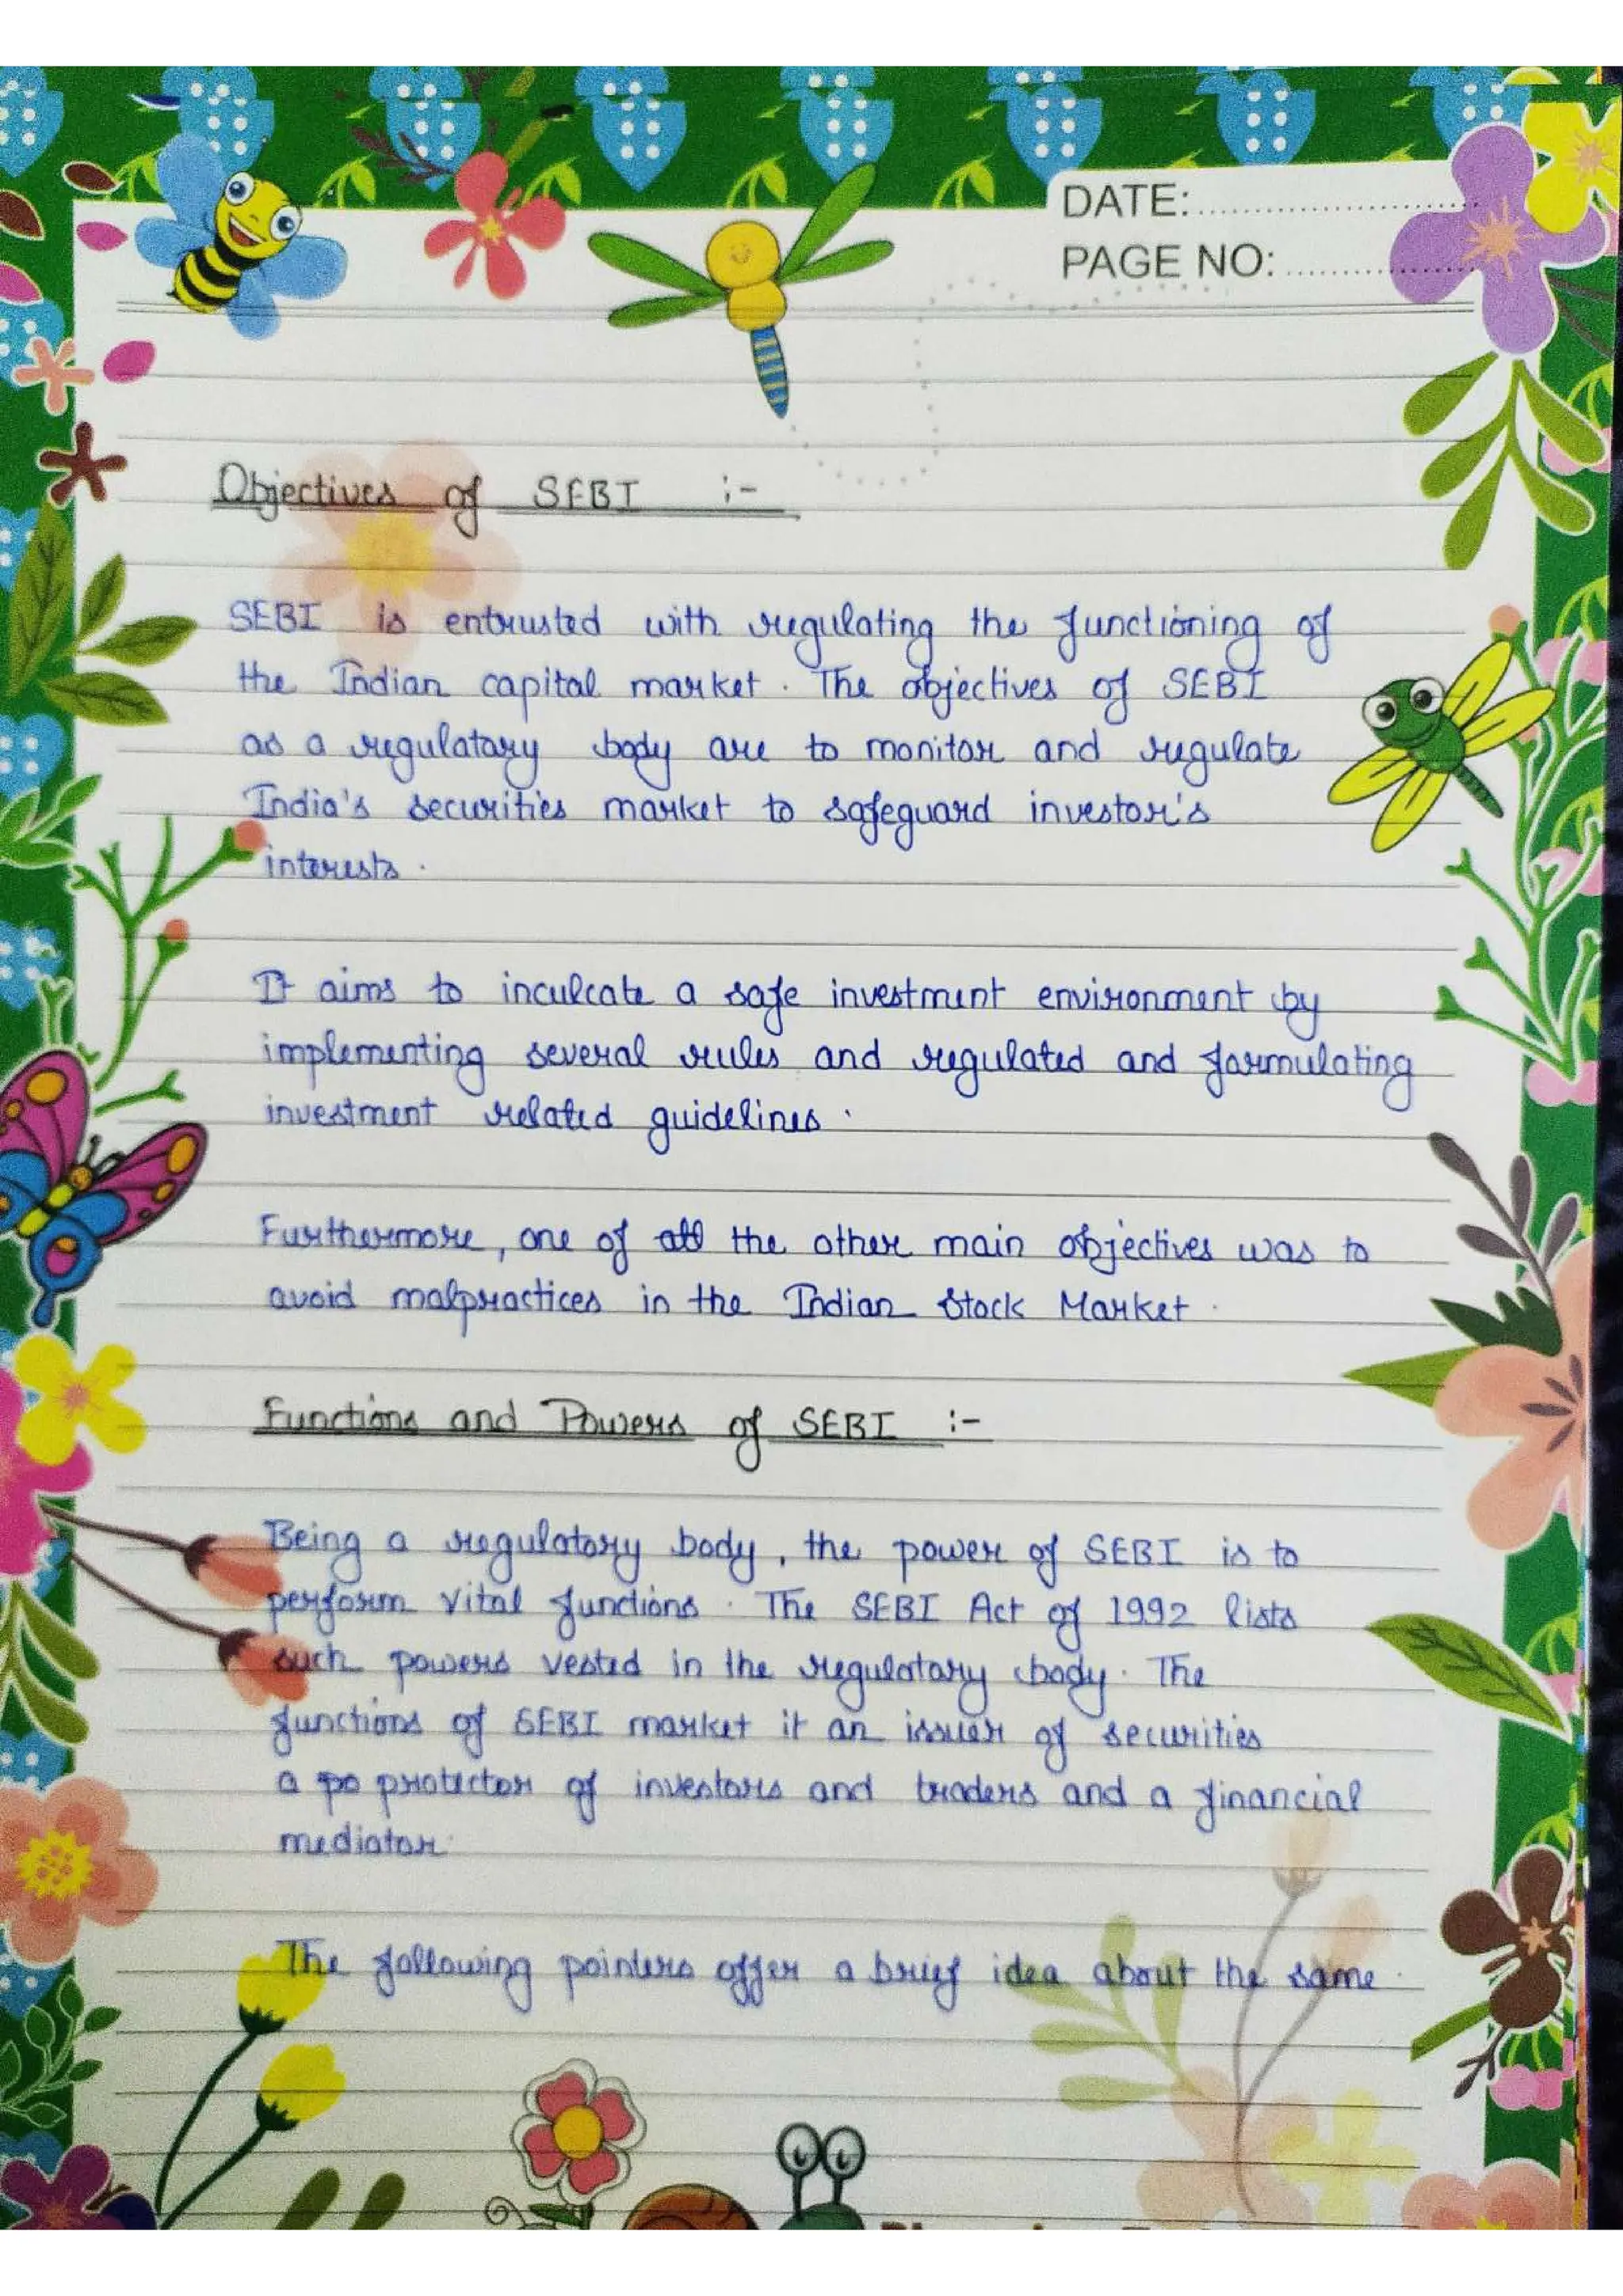 DATE:
PAGE NO:
Objectives of SEBI :-
SEBI is entrusted with regulating the functioning of
the Indian capital market. The objectives of SEBI
as a regulatory body are to monitor and regulate
India's securities market to safeguard investor's
interests.
It aims to inculcate a safe investment environment by
implementing several rules and regulated and formulating
investment related guidelines.
Furthermore, one of all the other main objectives was to
avoid malpractices in the Indian Stock Market.
Functions and Powers of SEBI :-
Being a regulatory body, the power of SEBI is to
perform vital functions. The SEBI Act of 1992 lists
such powers vested in the regulatory body. The
functions of SEBI market it an issuer of securities
a po protector of investors and traders and a financial
mediator.
The following pointers offer a brief idea about the same.